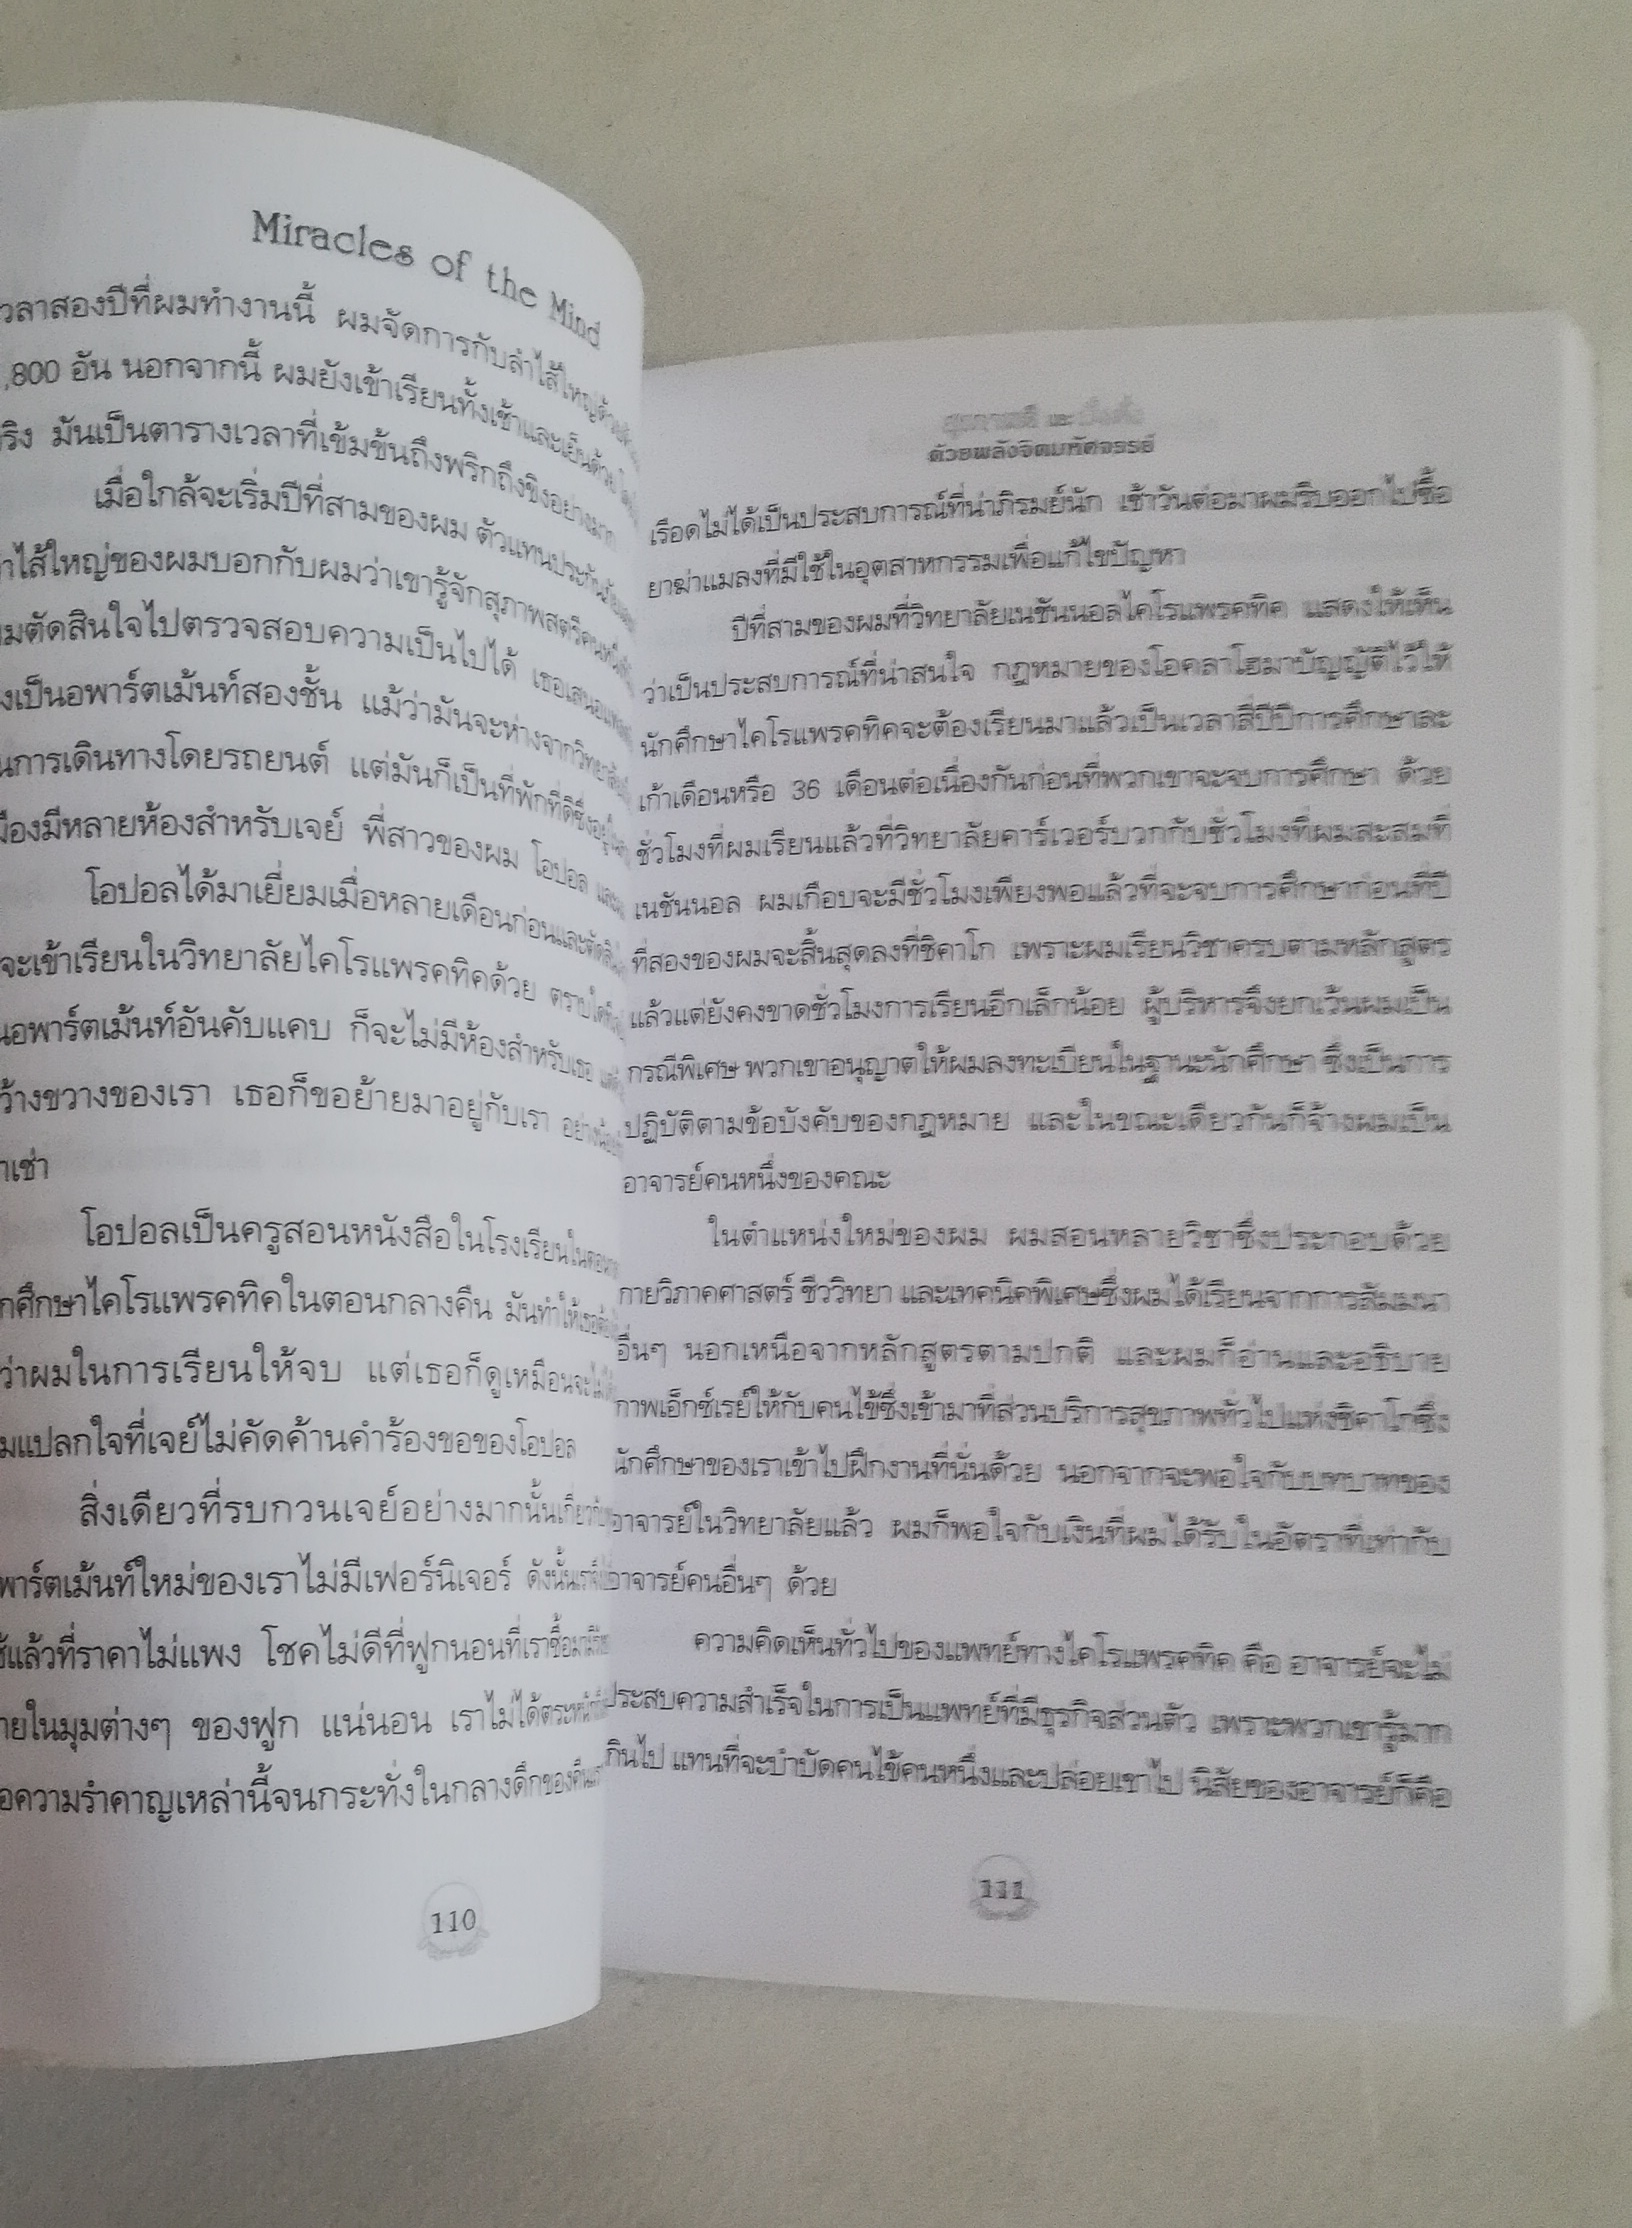 Miracles of the Mind
วลาสองปีที่ผมทำงานนี้ ผมจัดการกับลำไส้ใหญ่
,800 อัน นอกจากนี้ ผมยังเข้าเรียนทั้งเช้าและเย็นด้วย
ริง มันเป็นตารางเวลาที่เข้มข้นถึงพริกถึงขิงอย่างมาก
เมื่อใกล้จะเริ่มปีที่สามของผม ตัวแทนประกัน
าไส้ใหญ่ของผมบอกกับผมว่าเขารู้จักสุภาพสตรีคนหนึ่ง
มตัดสินใจไปตรวจสอบความเป็นไปได้ เธอเสนอ
งเป็นอพาร์ตเม้นท์สองชั้น แม้ว่ามันจะห่างจากวิทยาลัย
นการเดินทางโดยรถยนต์ แต่มันก็เป็นที่พักที่ดีซึ่งอยู่
มืองมีหลายห้องสำหรับเจย์ พี่สาวของผม โอปอล และ
โอปอลได้มาเยี่ยมเมื่อหลายเดือนก่อนและตัดสิน
จะเข้าเรียนในวิทยาลัยไคโรแพรคทิคด้วย ตราบใดที่
นอพาร์ตเม้นท์อันคับแคบ ก็จะไม่มีห้องสำหรับเธอ
ว้างขวางของเรา เธอก็ขอย้ายมาอยู่กับเรา
าเช่า
โอปอลเป็นครูสอนหนังสือในโรงเรียนในตอน
กศึกษาไคโรแพรคทิคในตอนกลางคืน มันทำให้เธอ
ว่าผมในการเรียนให้จบ แต่เธอก็ดูเหมือนจะไม่
มแปลกใจที่เจย์ไม่คัดค้านคำร้องขอของโอปอล
สิ่งเดียวที่รบกวนเจย์อย่างมากนั้นเกี่ยวกับ
พาร์ตเม้นท์ใหม่ของเราไม่มีเฟอร์นิเจอร์ ดังนั้น
ช้แล้วที่ราคาไม่แพง โชคไม่ดีที่ฟูกนอนที่เราซื้อมามี
ายในมุมต่างๆ ของฟูก แน่นอน เราไม่ได้ตระหนัก
อความรำคาญเหล่านี้จนกระทั่งในกลางดึกของคืน
110
และ
ด้วยพลังจิตมหัศจรรย์
เรือดไม่ได้เป็นประสบการณ์ที่น่าภิรมย์นัก เช้าวันต่อมาผมรีบออกไปซื้อ
ยาฆ่าแมลงที่มีใช้ในอุตสาหกรรมเพื่อแก้ไขปัญหา
ปีที่สามของผมที่วิทยาลัยเนชันนอลไคโรแพรคทิค แสดงให้เห็น
ว่าเป็นประสบการณ์ที่น่าสนใจ กฎหมายของโอคลาโฮมาบัญญัติไว้ให้
นักศึกษาไคโรแพรคทิคจะต้องเรียนมาแล้วเป็นเวลาสี่ปีปีการศึกษาละ
เก้าเดือนหรือ 36 เดือนต่อเนื่องกันก่อนที่พวกเขาจะจบการศึกษา ด้วย
ชั่วโมงที่ผมเรียนแล้วที่วิทยาลัยคาร์เวอร์บวกกับชั่วโมงที่ผมสะสมที่
เนชันนอล ผมเกือบจะมีชั่วโมงเพียงพอแล้วที่จะจบการศึกษาก่อนที่ปี
ที่สองของผมจะสิ้นสุดลงที่ชิคาโก เพราะผมเรียนวิชาครบตามหลักสูตร
แล้วแต่ยังคงขาดชั่วโมงการเรียนอีกเล็กน้อย ผู้บริหารจึงยกเว้นผมเป็น
กรณีพิเศษ พวกเขาอนุญาตให้ผมลงทะเบียนในฐานะนักศึกษา ซึ่งเป็นการ
ปฏิบัติตามข้อบังคับของกฎหมาย และในขณะเดียวกันก็จ้างผมเป็น
อาจารย์คนหนึ่งของคณะ
ในตำแหน่งใหม่ของผม ผมสอนหลายวิชาซึ่งประกอบด้วย
กายวิภาคศาสตร์ ชีววิทยา และเทคนิคพิเศษซึ่งผมได้เรียนจากการสัมมนา
อื่นๆ นอกเหนือจากหลักสูตรตามปกติ และผมก็อ่านและอธิบาย
ภาพเอ็กซ์เรย์ให้กับคนไข้ซึ่งเข้ามาที่ส่วนบริการสุขภาพทั่วไปแห่งชิคาโกซึ่ง
นักศึกษาของเราเข้าไปฝึกงานที่นั่นด้วย นอกจากจะพอใจกับบทบาทของ
อาจารย์ในวิทยาลัยแล้ว ผมก็พอใจกับเงินที่ผมได้รับในอัตราที่เท่ากับ
อาจารย์คนอื่นๆ ด้วย
ความคิดเห็นทั่วไปของแพทย์ทางไคโรแพรคทิค คือ อาจารย์จะไม่
ประสบความสำเร็จในการเป็นแพทย์ที่มีธุรกิจส่วนตัว เพราะพวกเขารู้มาก
กินไป แทนที่จะบำบัดคนไข้คนหนึ่งและปล่อยเขาไป นิสัยของอาจารย์ก็คือ
111